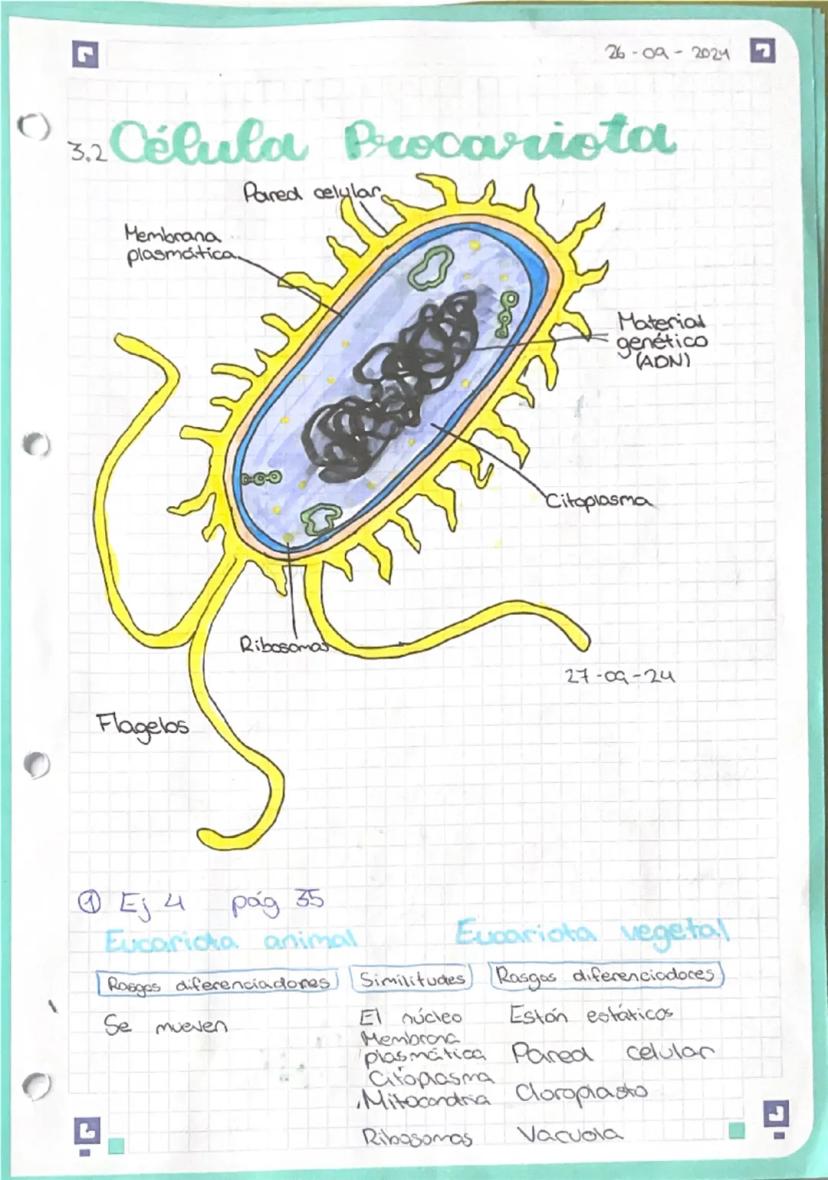 26-09-2024
3.2 Célula Procariota
Pared celular
Membrana
plasmática
Material
genético
(ADN)
Citoplasma
Ribosomas
27-09-24
Flagelos
① Ej 4 pág 35
Eucariota animal Eucariota vegetal
Rasgos diferenciadores Similitudes Rasgos diferenciadores
Se mueven El núcleo Están estáticos
Membrana
plasmática Pared celular
Citoplasma
Mitocondria Cloroplasto
Ribosomas Vacuola